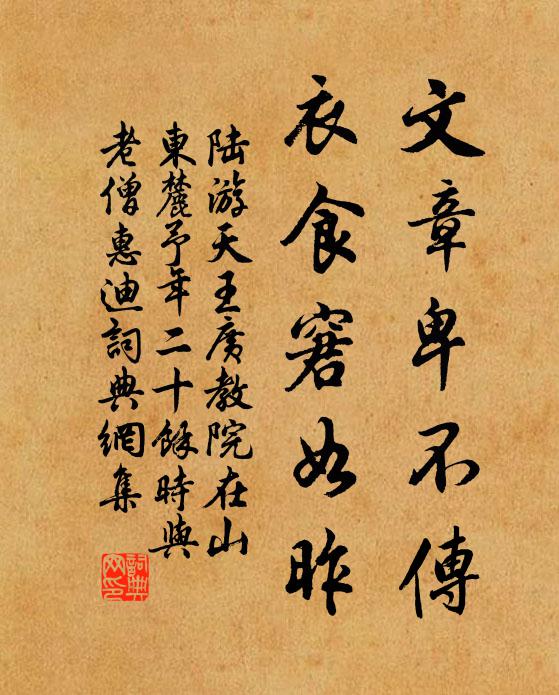 文章卑不傳
衣食窘如昨
陆游天王廣教院在山
東麓予年二十餘時與
老僧惠迪詞典網集
詞典
网印